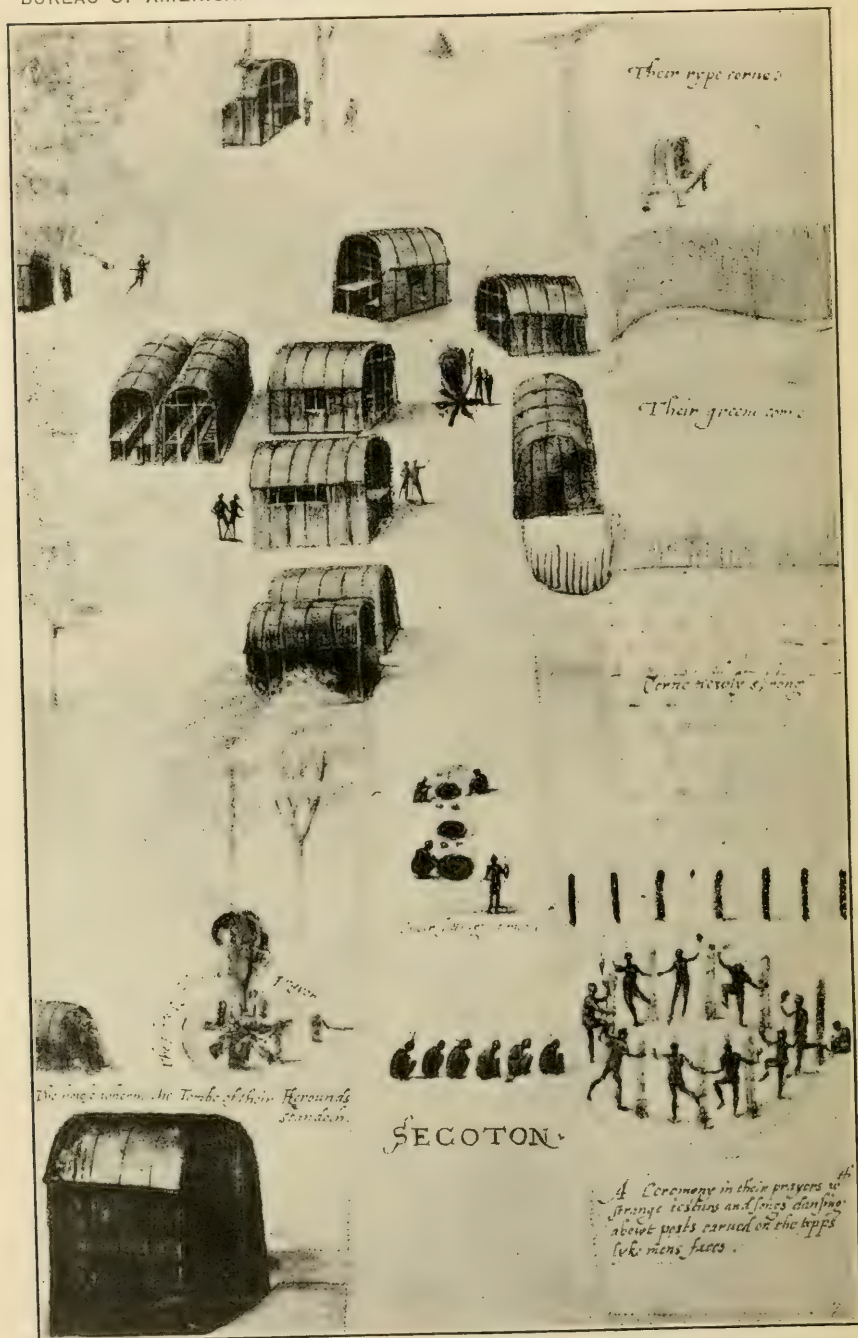 BUREAU OF AMERICAN
Their rype corne.
Their greene corne
Corne newly sprong
Their sitting at meate
The howse wherin the Tombe of their Herounds
standeth.
SECOTON.
A Ceremony in their prayers wth
strange iesturs and songs dansing
abowt posts carued on the topps
lyke mens faces.